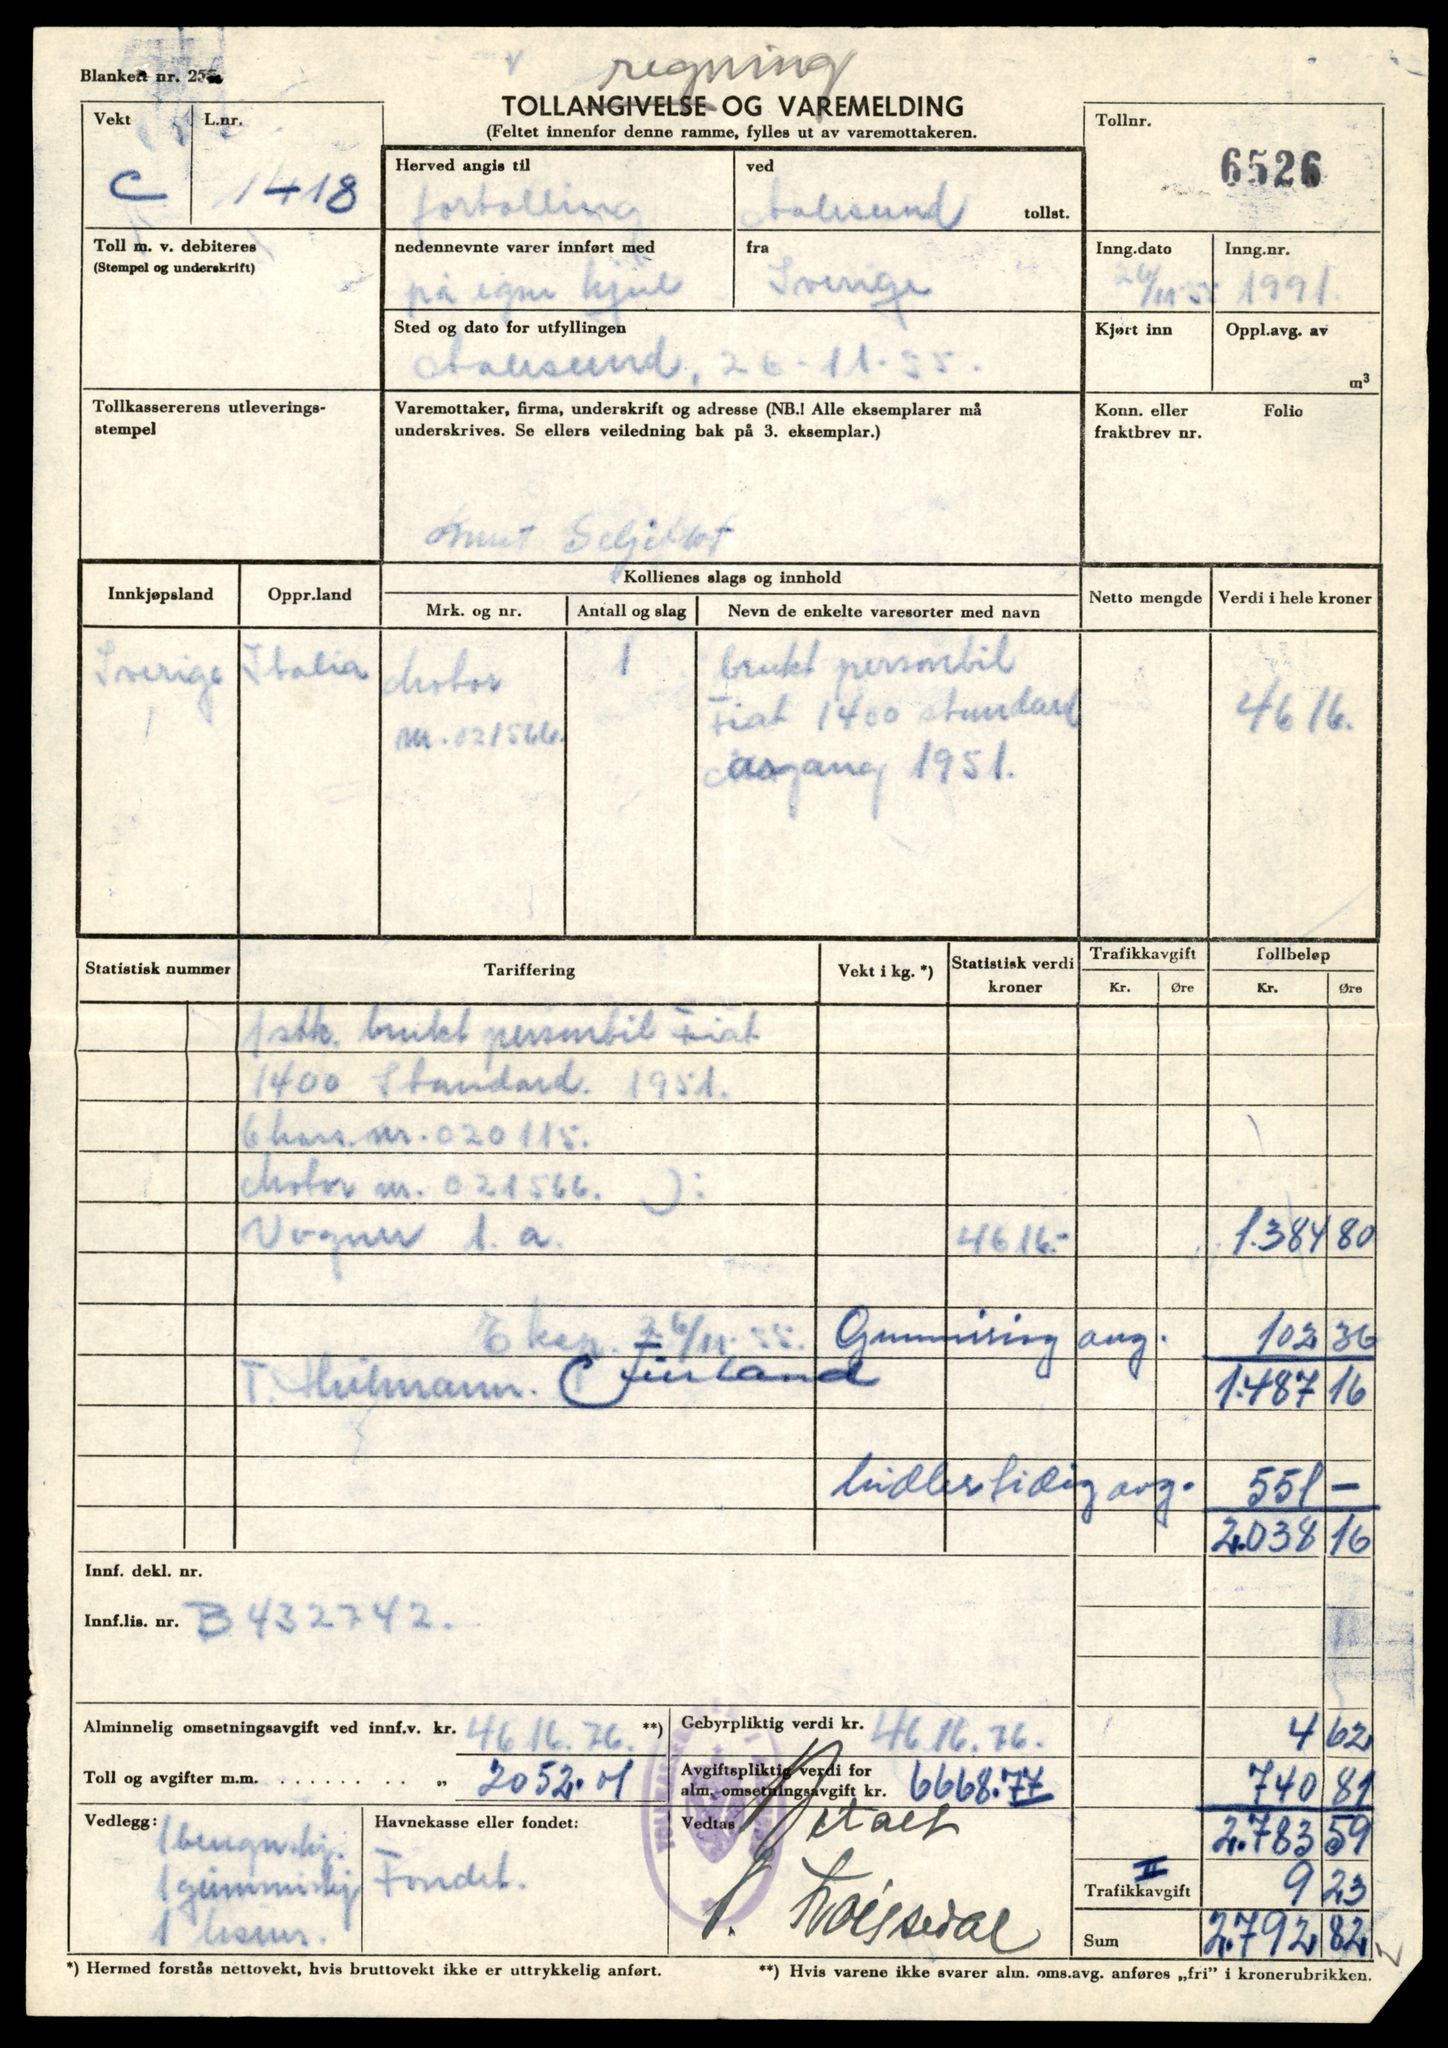 Blankett nr. 25
regning
TOLLANGIVELSE OG VAREMELDING
(Feltet innenfor denne ramme, fylles ut av varemottakeren.
Vekt
C
L.nr.
1418
Tollnr.
6526
Herved angis til
fortolling
ved
Aalesund
tollst.
Toll m. v. debiteres
(Stempel og underskrift)
nedennevnte varer innført med
på egne hjul
fra
Sverige
Inng.dato
26/11-55
Inng.nr.
1991.
Sted og dato for utfyllingen
Aalesund, 26-11-55.
Kjørt inn
Oppl.avg. av
m³
Tollkassererens utleverings-
stempel
Varemottaker, firma, underskrift og adresse (NB.! Alle eksemplarer må
underskrives. Se ellers veiledning bak på 3. eksemplar.)
Knut
Konn. eller
fraktbrev nr.
Folio
Innkjøpsland
Oppr.land
Kollienes slags og innhold
Mrk. og nr.
Antall og slag
Nevn de enkelte varesorter med navn
Netto mengde
Verdi i hele kroner
Sverige
Italia
Motor
nr. 021566.
1
brukt personbil
Fiat 1400 standard
årgang 1951.
4616.
Statistisk nummer
Tariffering
Vekt i kg. *)
Statistisk verdi
kroner
Trafikkavgift
Kr.
Øre
Tollbeløp
Kr.
Øre
1 stk. brukt personbil Fiat
1400 Standard. 1951.
Chass. nr. 020115.
Motor nr. 021566. ):
Vogner 1. a.
4616.-
1.384 80
Eksp. 26/11-55.
Gummiring avg.
102 36
T.
1.487 16
Midlertidig avg.
551 —
2.038 16
Innf. dekl. nr.
Innf.lis. nr. B 432742.
Alminnelig omsetningsavgift ved innf.v. kr. 4616.76. **)
Gebyrpliktig verdi kr. 4616.76.
4 62
Toll og avgifter m.m. . . . . . . . . . „ 2052.01
Avgiftspliktig verdi for
alm. omsetningsavgift kr. 6668.77
740 81
Vedlegg:
1 gummiskj.
1 lisens.
Havnekasse eller fondet:
Fondet.
Vedtas
Betalt
2.783 59
II
Trafikkavgift
9 23
Sum
2.792 82
*) Hermed forstås nettovekt, hvis bruttovekt ikke er uttrykkelig anført.
**) Hvis varene ikke svarer alm. oms.avg. anføres „fri” i kronerubrikken.